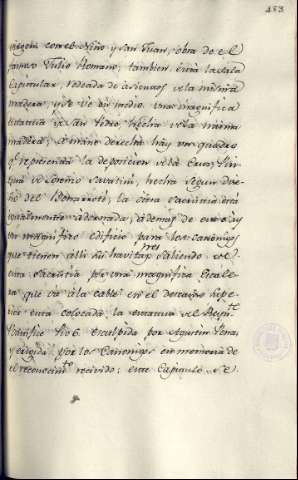 453
virgen con el Niño y San Juan, obra de el
famoso Julio Romano; tambien está la Sala
Capitular, rodeada de asientos de la misma
madera, y se ve en medio una magnifica
estatua de San Pedro, hecha de la misma
madera; a mano derecha hay un quadro
q.e representa la deposicion de la Cruz,
de Lorenzo Savatini, hecha segun
del Bonarroti; la otra sacristia está
igualmente adornada, ademas de esto ay
un magnifico edificio para los canonigos
que tienen alli su havitaz.on saliendo de
esta sacristia por una magnifica Escale-
ra que va à la calle en el descanso
esta colocada la estatua del
Pontifice Pio 6. esculpida por Agustin Penas
y erigida por los Canonigos en memoria de
el reconocim.to recivido; este Capitulo de